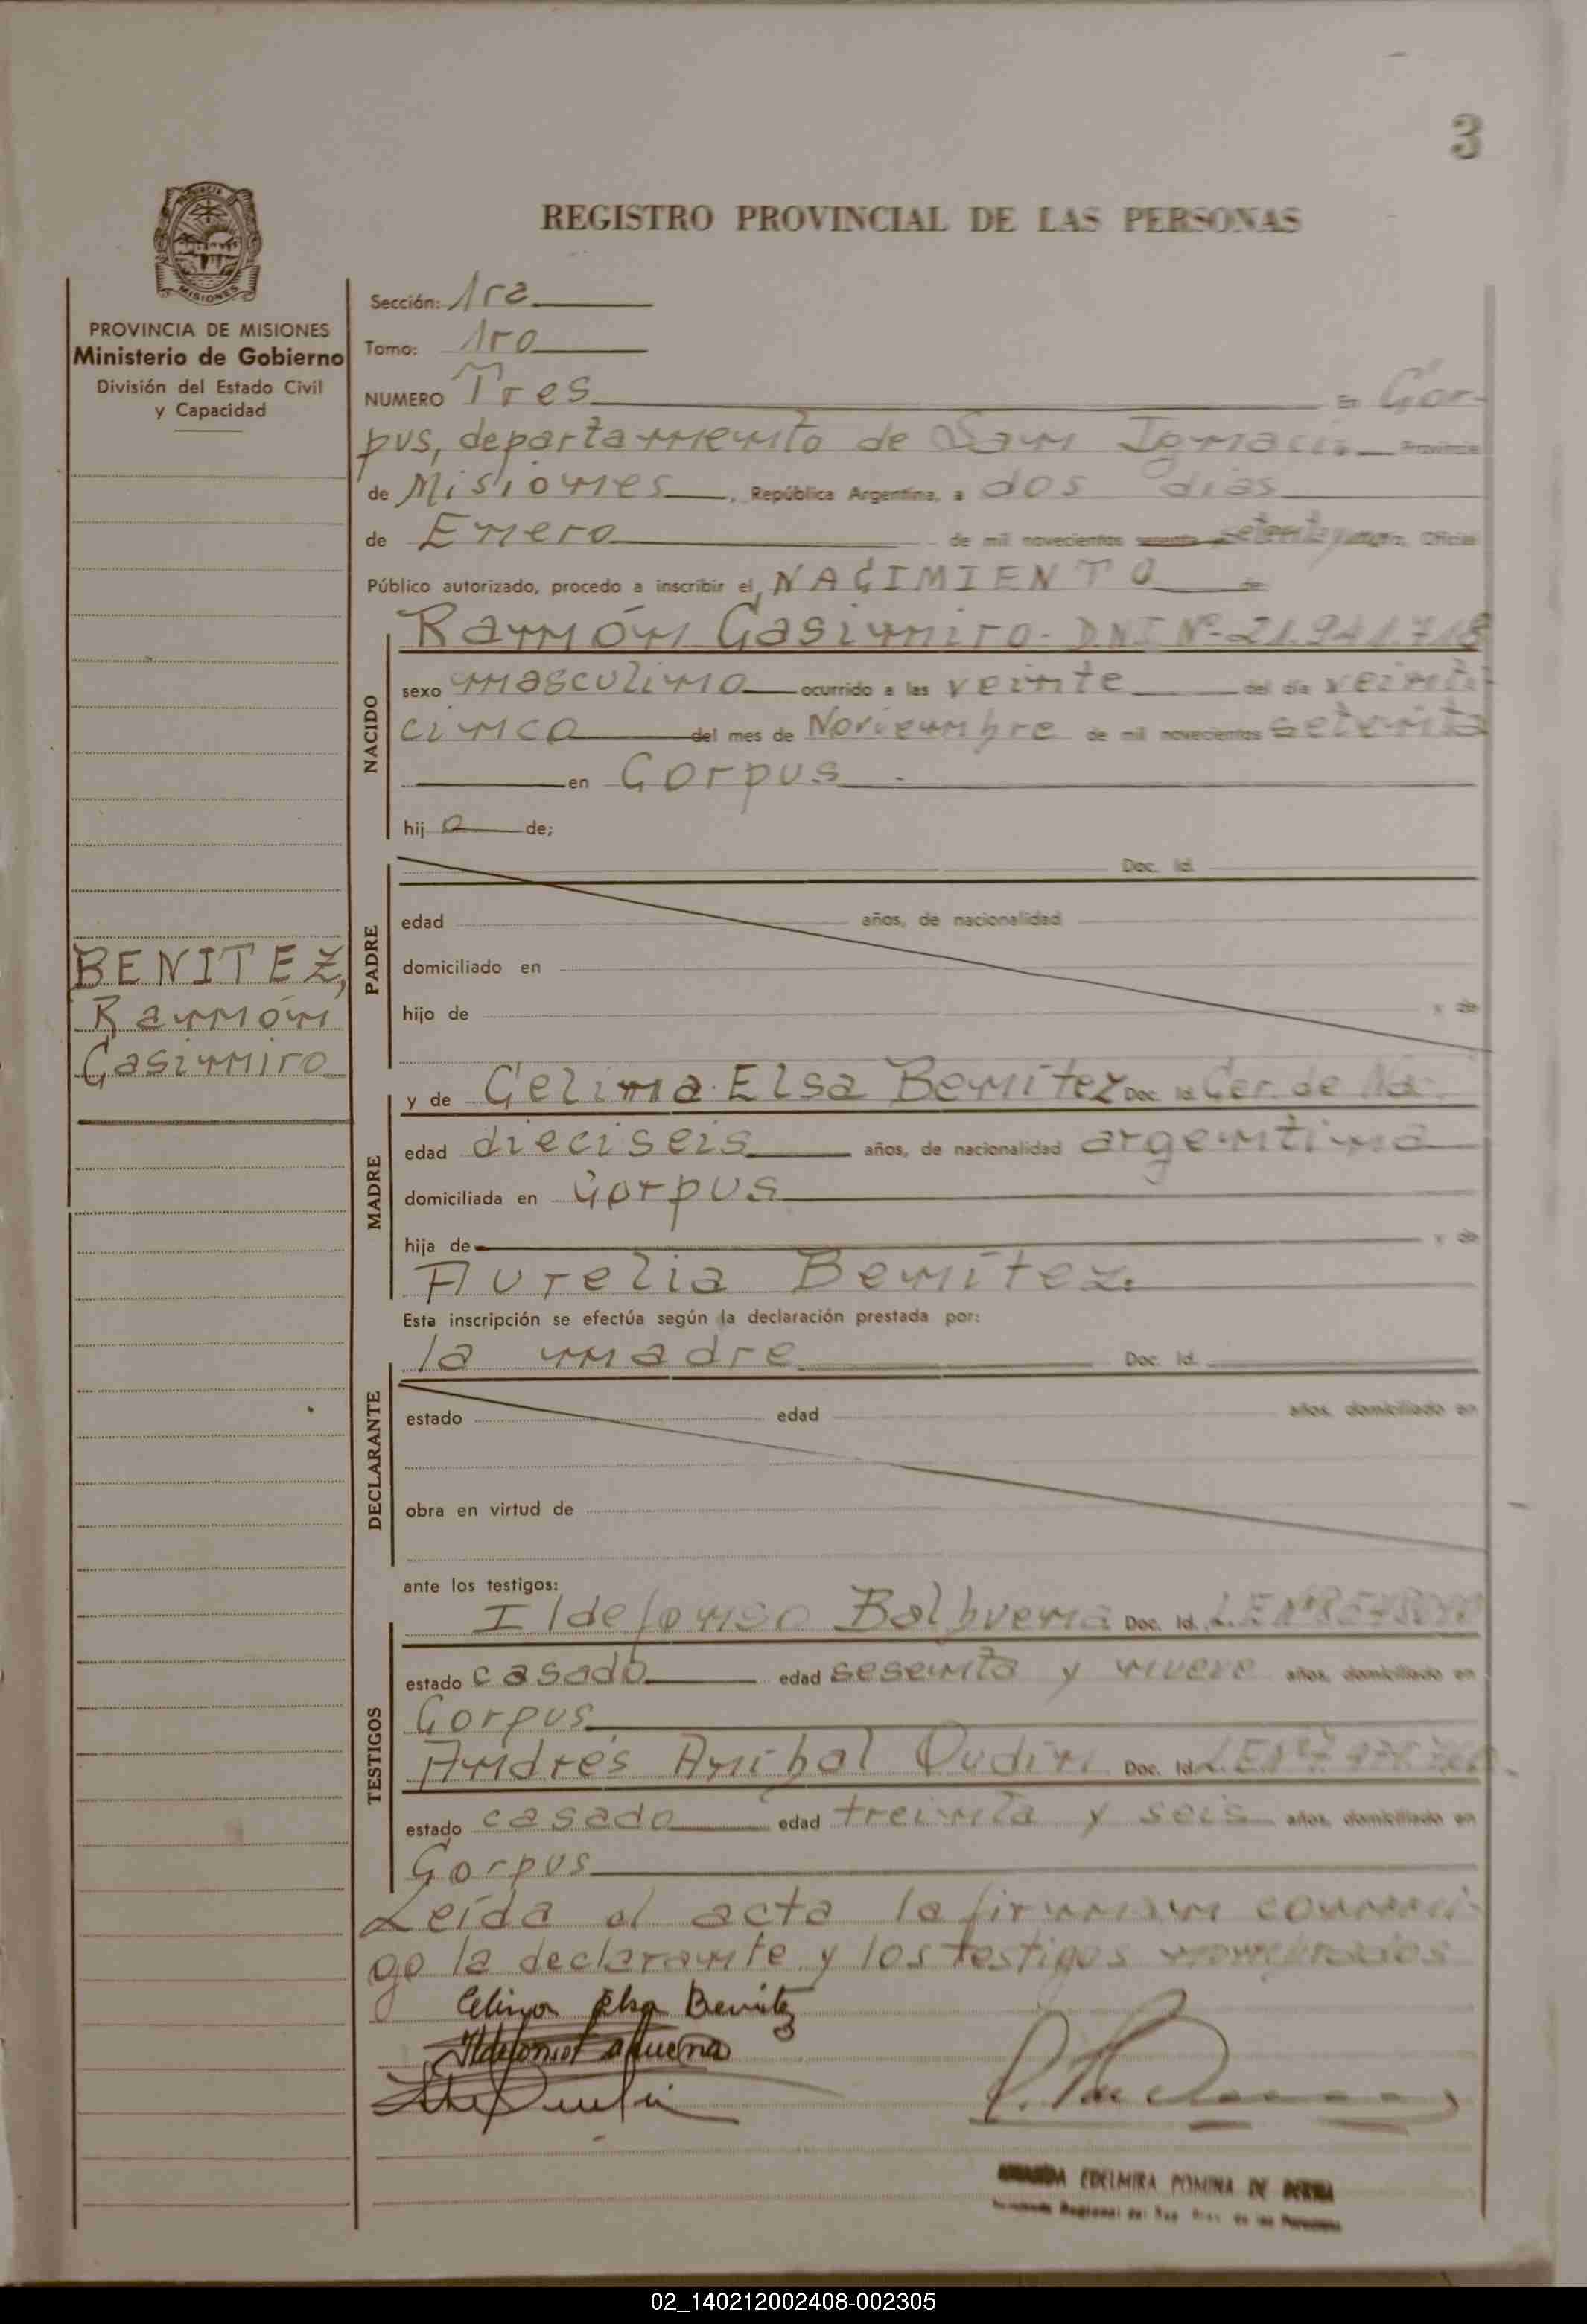 3
REGISTRO PROVINCIAL DE LAS PERSONAS
PROVINCIA
MISIONES
PROVINCIA DE MISIONES
Ministerio de Gobierno
División del Estado Civil
y Capacidad
BENITEZ,
Ramón
Casimiro
Sección: 1ra
Tomo: 1ro
NUMERO Tres En Cor-
pus, departamento de San Ignacio Provincia
de Misiones, República Argentina, a dos dias
de Enero de mil novecientos sesenta setenta y uno, Oficial
Público autorizado, procedo a inscribir el NACIMIENTO de
NACIDO
Ramón Casimiro- DNI Nº- 21.941.718
sexo masculino ocurrido a las veinte del día veinti-
cinco del mes de Noviembre de mil novecientos setenta
en Corpus.
hijo de;
PADRE
Doc. Id.
edad años, de nacionalidad
domiciliado en
hijo de y de
MADRE
y de Celina Elsa Benitez Doc. Id. Cer. de Na.
edad dieciseis años, de nacionalidad argentina
domiciliada en Corpus
hija de y de
Aurelia Benítez.
Esta inscripción se efectúa según la declaración prestada por:
la madre Doc. Id.
DECLARANTE
estado edad años, domiciliado en
obra en virtud de
ante los testigos:
TESTIGOS
Ildefonso Balbuena Doc. Id. L.E.Nº
estado casado edad sesenta y nueve años, domiciliado en
Corpus
Andrés Anibal Oudin Doc. Id. L.E.Nº
estado casado edad treinta y seis años, domiciliado en
Corpus
Leída el acta la firman conmi-
go la declarante y los testigos nombrados
Celina Elsa Benitez
Ildefonso
EDELMIRA POMINA DE
02_140212002408-002305